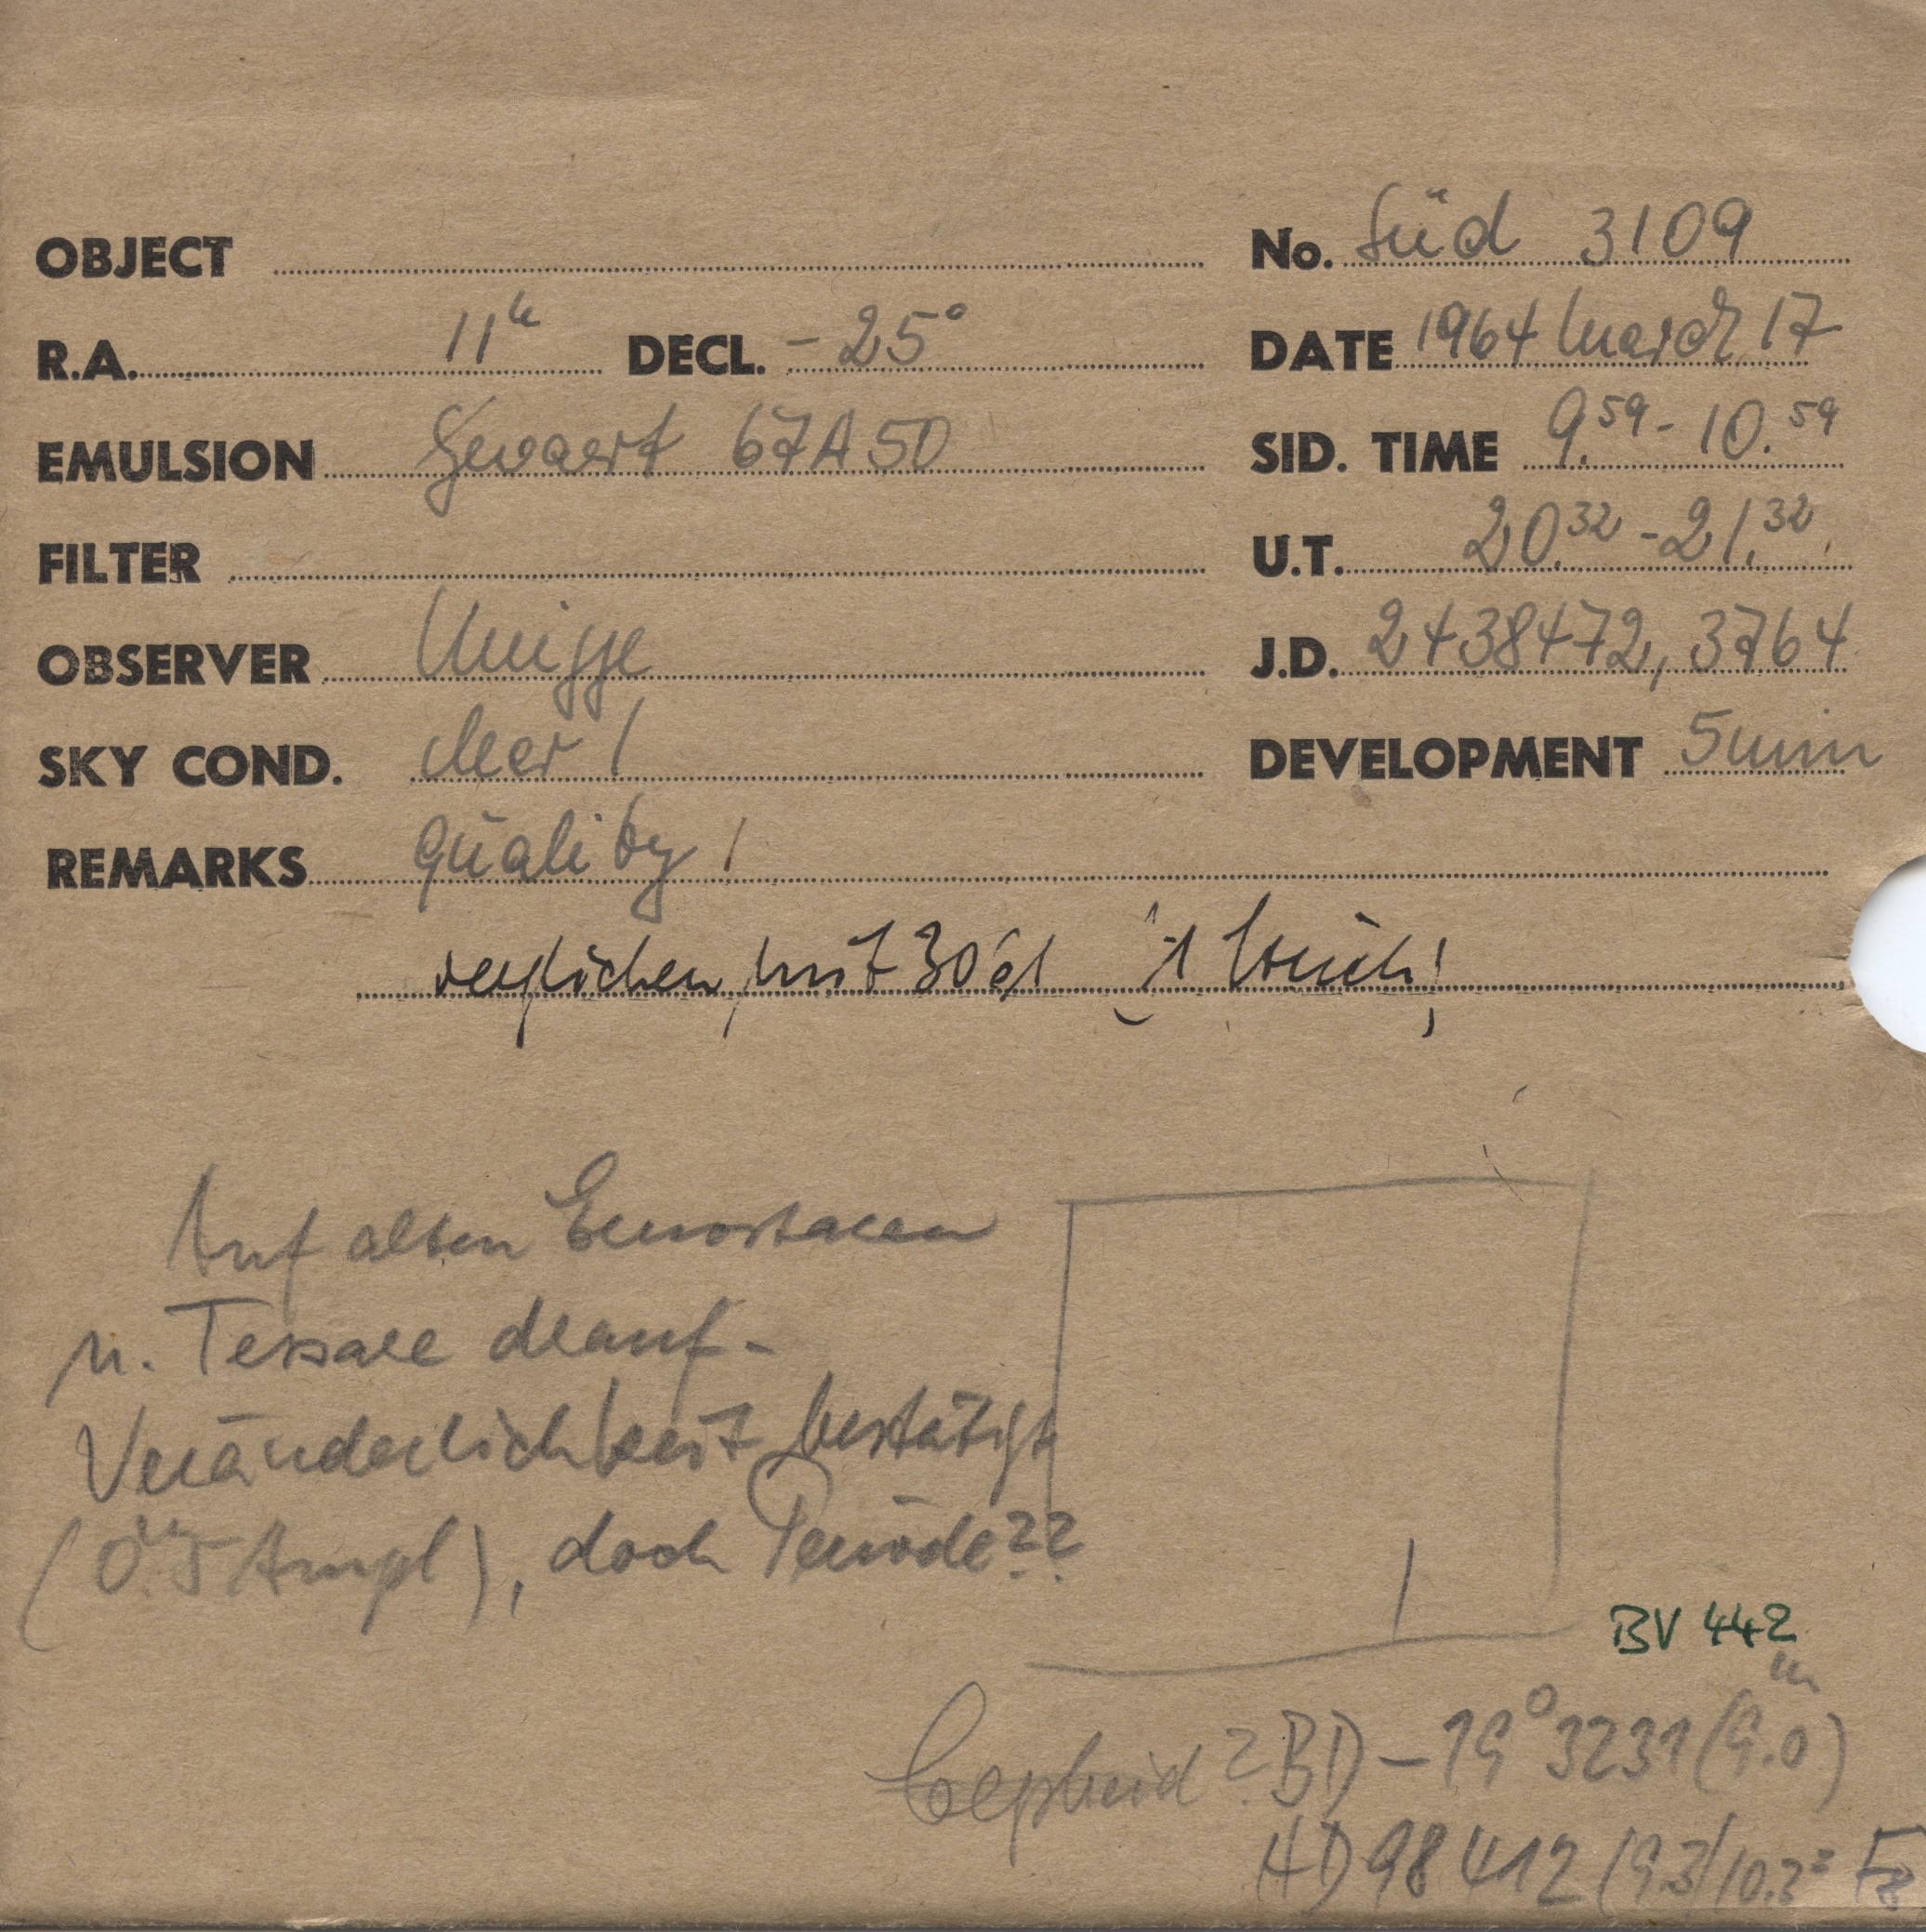 OBJECT No. Süd 3109
R.A. 11h DECL. -25° DATE 1964 March 17
EMULSION Gevaert 67A50 SID. TIME 9.59 - 10.59
FILTER U.T. 20.32 - 21.32
OBSERVER J.D. 2438472,3764
SKY COND. clear 1 DEVELOPMENT 5 min
REMARKS quality 1
verglichen mit
Auf alten
u. Tessare drauf -
Veränderlichkeit bestätigt
(0.m5 Ampl), doch Periode??
BV 442
Cepheid? BD -19° 3231 (9.m0)
HD 98412 (9.3/10.2